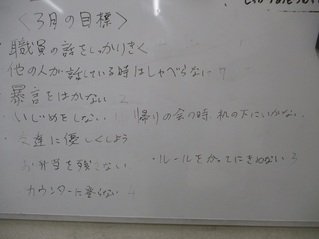 〈3月の目標〉
職員の話をしっかりきく
他の人が話している時はしゃべらない 7
暴言をはかない 2
・いじめをしない 帰りの会の時 机の下にいかない
・友達に優しくしよう
お弁当を残さない ・ルールをかってにきめない 3
カウンターに登らない 4